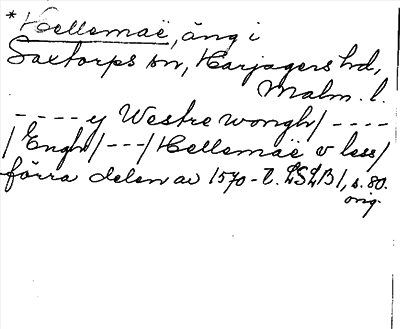 * Hellemaë, äng i
Saxtorps sn, Harjagers hd,
Malm. l.
- - - - y Westre wongh/ - - - -
/Engh/ - - -/Hellemaë v less/
förra delen av 1570-t. LSLB1, s. 80.
orig.